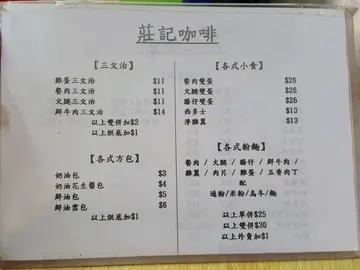 莊記咖啡
【三文治】
雞蛋三文治 $11
餐肉三文治 $11
火腿三文治 $11
鮮牛肉三文治 $14
以上雙併加$2
以上烘底加$1
【各式方包】
奶油包 $3
奶油花生醬包 $4
鮮油包 $5
鮮油蛋包 $6
以上烘底加$1
【各式小食】
餐肉雙蛋 $26
火腿雙蛋 $26
腸仔雙蛋 $26
西多士 $13
淨雞翼 $13
【各式粉麵】
餐肉 / 火腿 / 腸仔 / 鮮牛肉 /
雞翼 / 肉片 / 雞蛋 / 五香肉丁
配
通粉/米粉/烏冬/麵
以上單併$25
以上雙併$30
以上外賣加$1